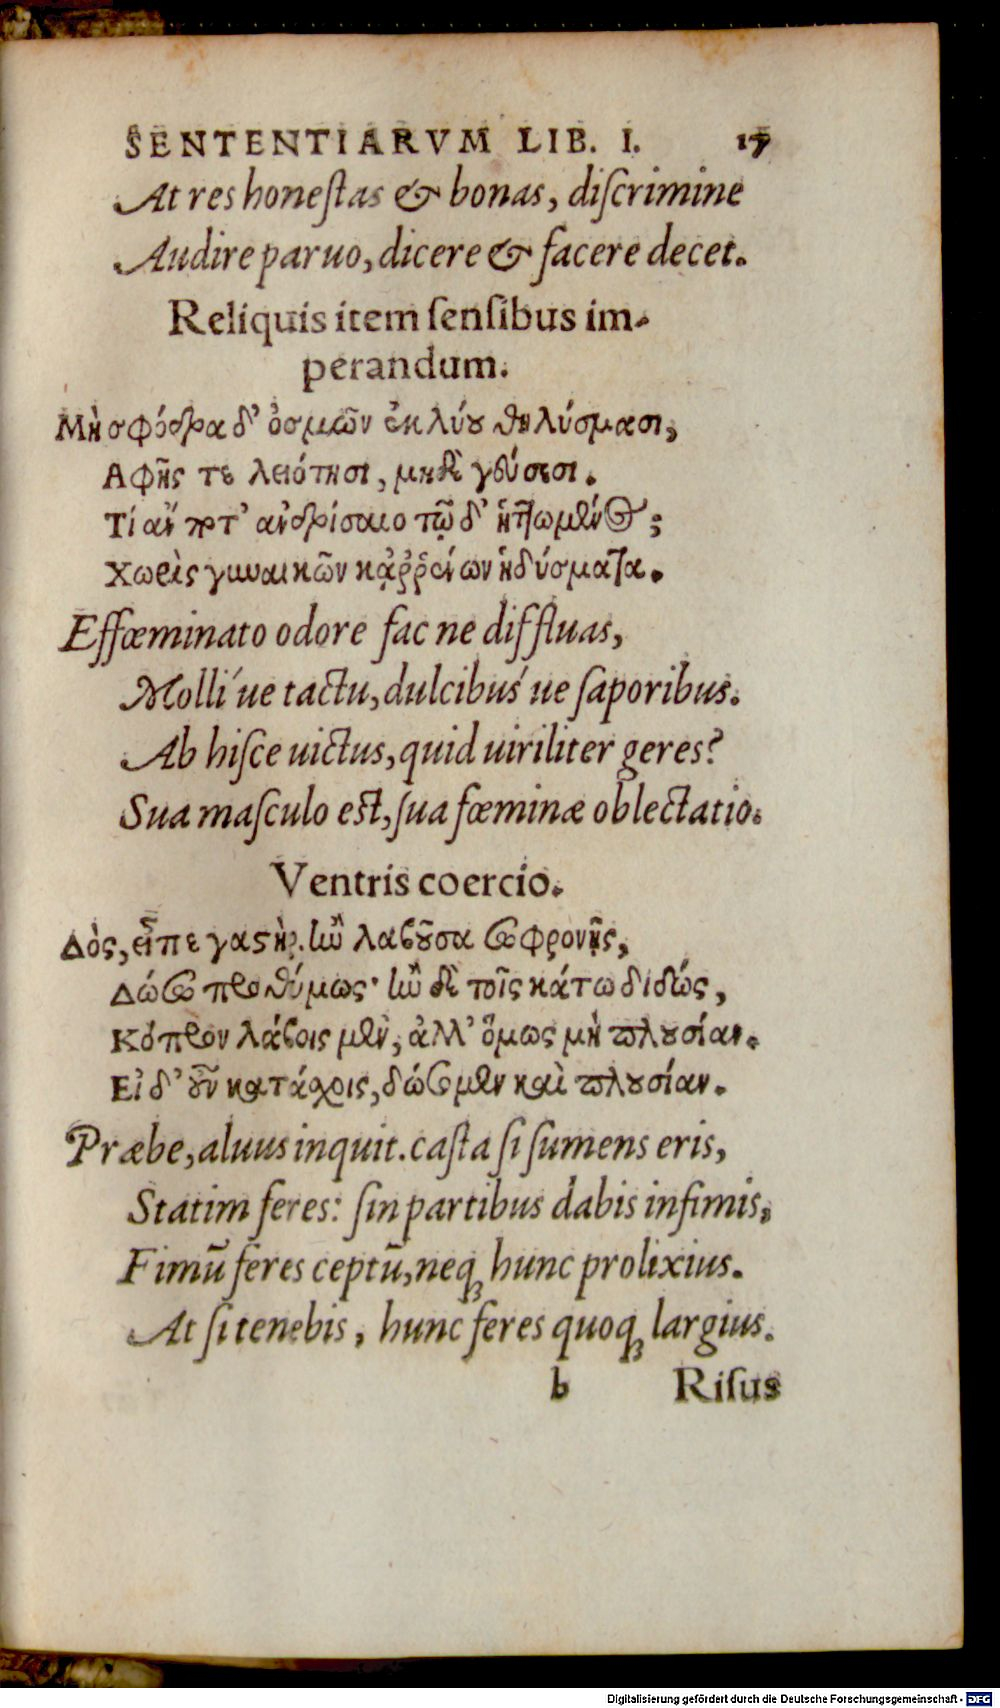 SENTENTIARVM LIB. I. 17
At res honeſtas & bonas, diſcrimine
Audire paruo, dicere & facere decet.
Reliquis item ſenſibus im-
perandum.
Μὴ σφόδρα δ' ὀσμῶν ἐκλύου θηλύσμασι,
Ἁφῆς τε λειότησι, μηδὲ γεύσεσι.
Τί ἄν ποτ' ἀνδρίσαιο τῷ δ' ἡττώμενος;
Χωρὶς γυναικῶν κἀῤῥένων ἡδύσματα.
Effœminato odore fac ne diffluas,
Molli´ue tactu, dulcibus´ue ſaporibus.
Ab hiſce uictus, quid uiriliter geres?
Sua maſculo eſt, ſua fœminæ oblectatio.
Ventris coercio.
Δὸς, εἶπε γαστὴρ. ἢν λαβοῦσα σωφρονῇς,
Δώσω προθύμως· ἢν δὲ τοῖς κάτω διδῷς,
Κόπρον λάβοις μὲν, ἀλλ' ὅμως μὴ πλουσίαν.
Εἰ δ' οὖν κατάχοις, δώσομεν καὶ πλουσίαν.
Præbe, aluus inquit. caſta ſi ſumens eris,
Statim feres: ſin partibus dabis infimis,
Fimū feres ceptū, neqꝫ hunc prolixius.
At ſi tenebis, hunc feres quoqꝫ largius.
b Riſus
Digitalisierung gefördert durch die Deutsche Forschungsgemeinschaft - DFG